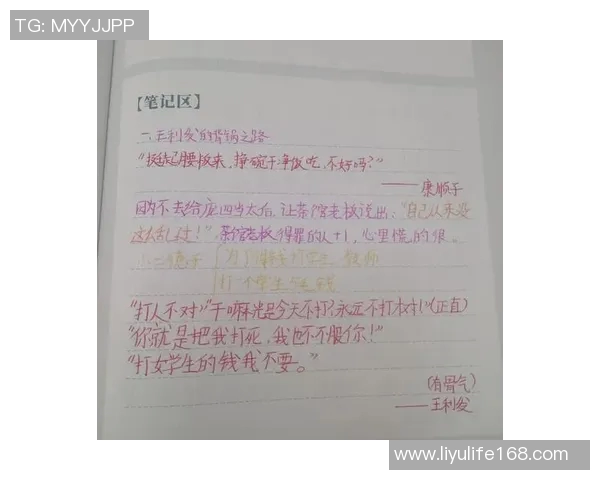 TG: MYYJJPP
【笔记区】
一、王利发的背锅之路
"挺起腰板来，挣碗干净饭吃，不好吗？"
——康顺子
因为不去给庞四当太后，让茶馆老板说出："自己从来没
这么乱过！"茶馆老板得罪的人+1，心里慌的很。
二德子
打一个学生
"打人不对""干嘛光是今天不打？永远不打才对！"(正直)
"你就是把我打死，我也不服你！"
"打女学生的钱我不要。"
(有骨气)
——王利发
www.liyulife168.com